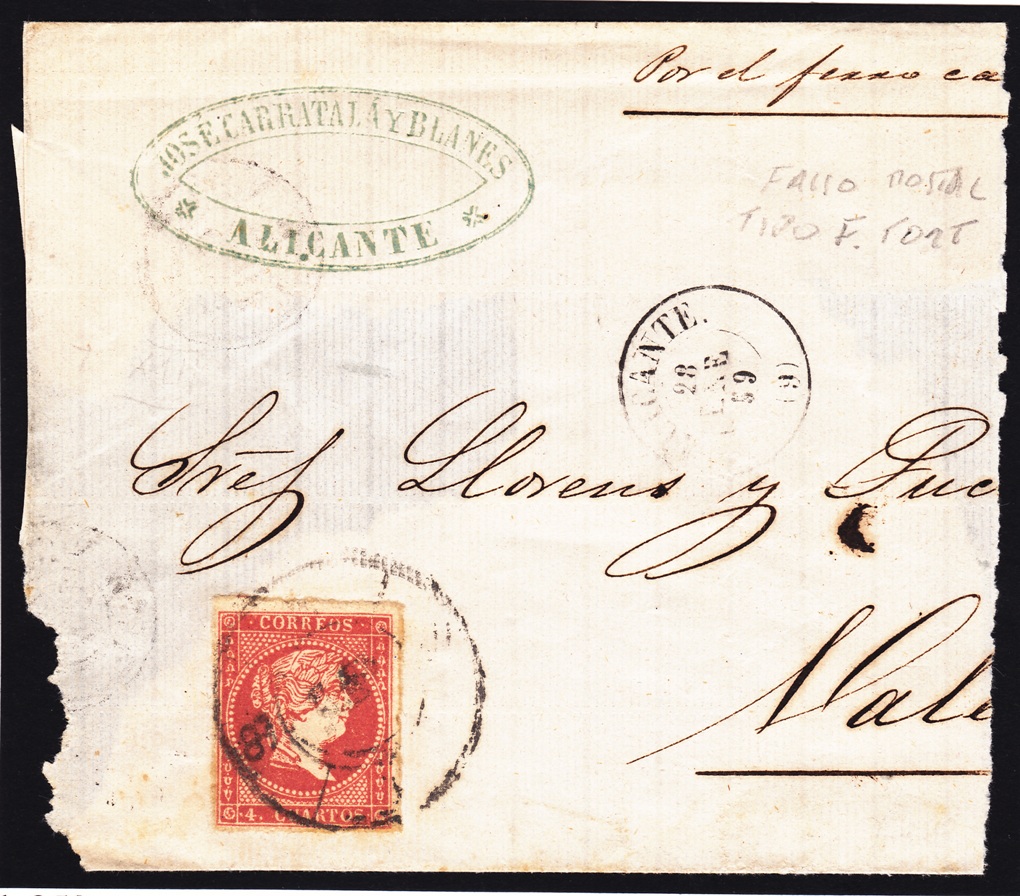 Por el ferro ca
JOSÉ CARRATALÁ Y BLANES
ALICANTE
FALSO POSTAL
TIPO F. TORT
ALICANTE.
28
ENE
59
(6)
Sres Llorens y Puc
Vale
CORREOS
4. CUARTOS